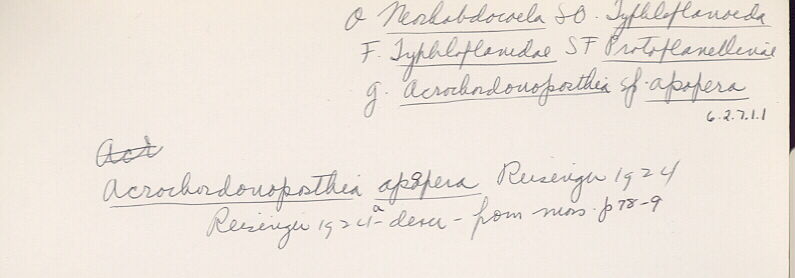 O Neorhabdocoela SO. Typhloplanoeda
F. Typhloplanidae SF Protoplanellinae
g. Acrochordonoposthia sp. apopera
6.2.7.1.1
Act
Acrochordonoposthia apopera Reisinger 1924
Reisinger 1924a - descr - from moss. p 78-9